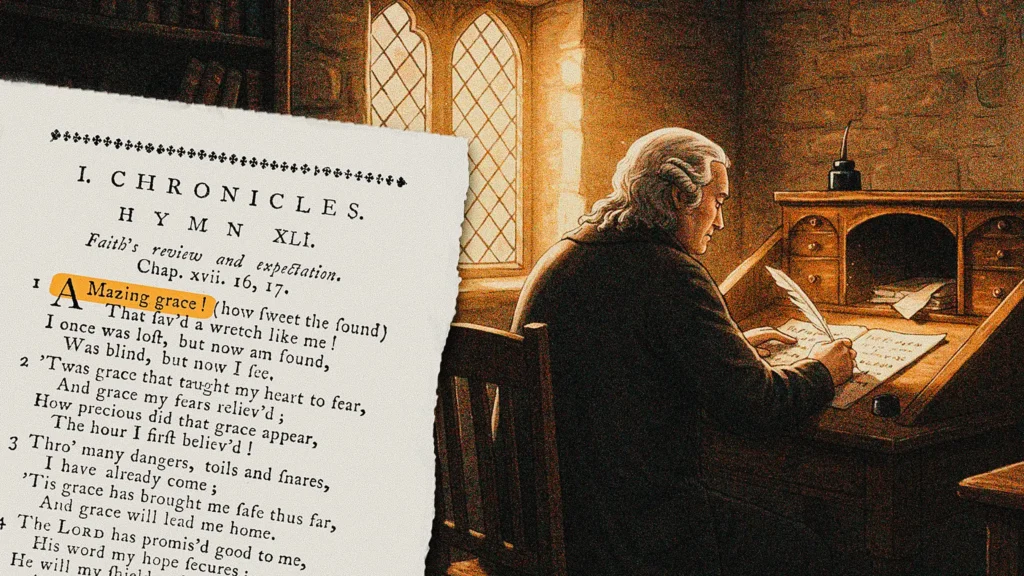 I. CHRONICLES.
HYMN XLI.
Faith's review and expectation.
Chap. xvii. 16, 17.
1 AMazing grace! (how ſweet the ſound)
That ſav'd a wretch like me!
I once was loſt, but now am found,
Was blind, but now I ſee.
2 'Twas grace that taught my heart to fear,
And grace my fears reliev'd;
How precious did that grace appear,
The hour I firſt believ'd!
3 Thro' many dangers, toils and ſnares,
I have already come;
'Tis grace has brought me ſafe thus far,
And grace will lead me home.
4 The LORD has promis'd good to me,
His word my hope ſecures;
He will my